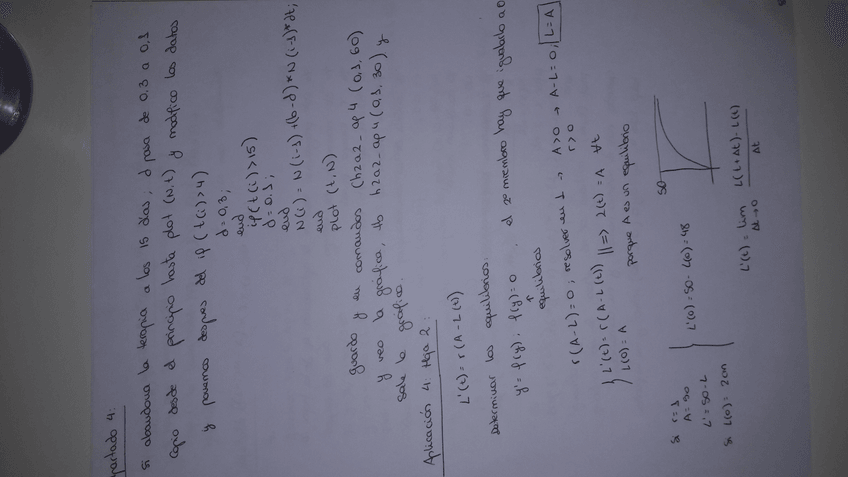 apartado 4:
si abandona la terapia a los 15 días; d pasa de 0,3 a 0,1
copio desde el principio hasta plot (N,t) y modifico los datos
y ponemos después del if (t(i)>4)
d=0,3;
end
if(t(i)>15)
d=0,1;
end
N(i)=N(i-1)+(b-d)*N(i-1)*dt;
end
plot (t,N)
guardo y en comandos (h2a2-ap4 (0,1,60)
y veo la gráfica, tb h2a2-ap4 (0,1,30) y
sale la gráfica.
Aplicación 4. Hoja 2:
L'(t)=r(A-L(t))
determinar los equilibrios:
y'=f(y); f(y)=0, el 2º miembro hay que igualarlo a 0
↑
equilibrios
r(A-L)=0; resolver en L → A>0 → A-L=0; L=A
r>0
{ L'(t)=r(A-L(t)) ||=> L(t)=A ∀t
L(0)=A
porque A es un equilibrio
si r=1
A=50
L'=50-L
si L(0)=2cm
L'(0)=50-L(0)=48
50
L'(t)=lim L(t+Δt)-L(t)
Δt→0 Δt